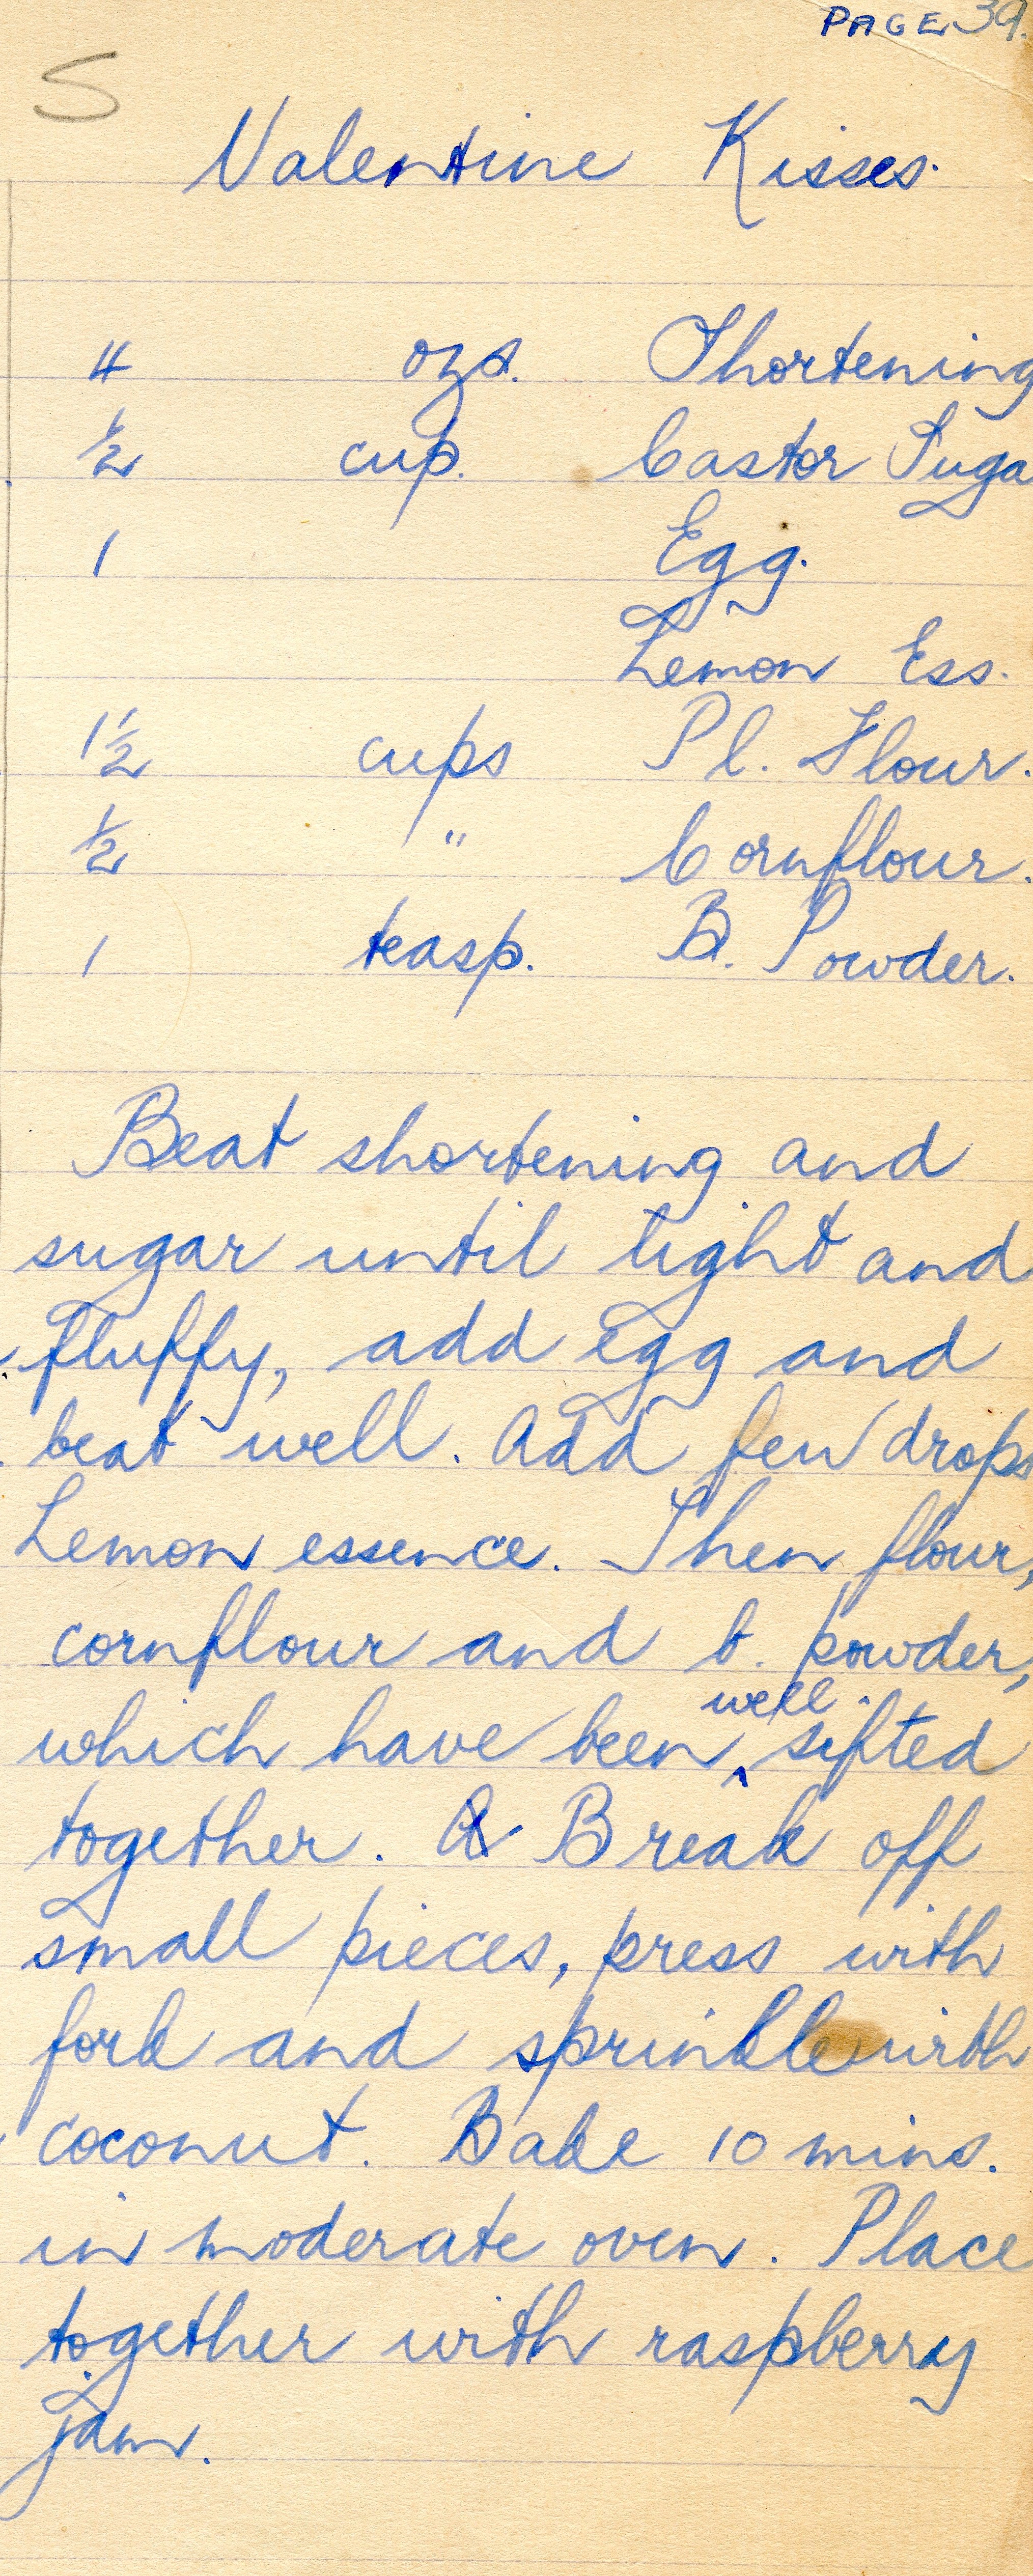 PAGE 39.
S
Valentine Kisses.
4 ozs. Shortening
1/2 cup. Castor Suga
1 Egg.
Lemon Ess.
1 1/2 cups Pl. Flour.
1/2 " Cornflour.
1 teasp. B. Powder.
Beat shortening and
sugar until light and
fluffy, add egg and
beat well. Add few drops
Lemon essence. Then flour,
cornflour and b. powder,
which have been ^well sifted
together. Break off
small pieces, press with
fork and sprinkle with
coconut. Bake 10 mins.
in moderate oven. Place
together with raspberry
jam.